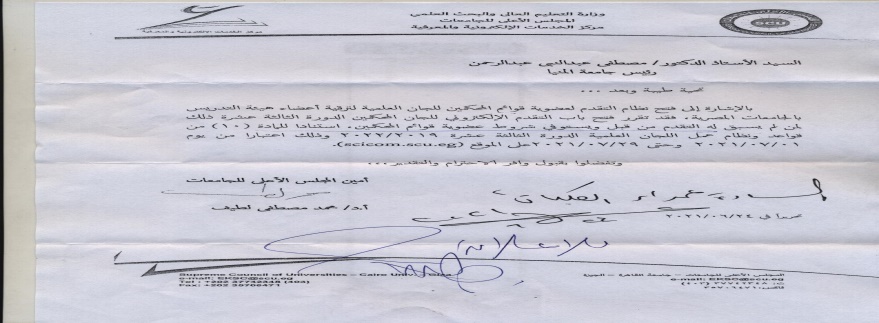 وزارة التعليم العالي والبحث العلمي
المجلس الأعلى للجامعات
مركز الخدمات الإلكترونية والمعرفية
SCU
السيد الأستاذ الدكتور/ مصطفى عبدالنبي عبدالرحمن
رئيس جامعة المنيا
تحية طيبة وبعد ...
بالإشارة إلى فتح نظام التقدم لعضوية قوائم المحكمين للجان العلمية لترقية أعضاء هيئة التدريس
بالجامعات المصرية، فقد تقرر فتح باب التقدم الإلكتروني للجان المحكمين الدورة الثالثة عشرة وذلك
لمن لم يسبق له التقدم من قبل ويستوفي شروط عضوية قوائم المحكمين، استنادا للمادة (١٠) من
قواعد ونظام عمل اللجان العلمية الدورة الثالثة عشرة ٢٠٢٢/٢٠١٩ وذلك اعتبارا من يوم
٢٠٢١/٠٧/٠١ وحتى ٢٠٢١/٠٧/٢٩ على الموقع (scicom.scu.eg).
وتفضلوا بقبول وافر الاحترام والتقدير ...
أمين المجلس الأعلى للجامعات
السادة عمداء الكليات
أ.د/ محمد مصطفى لطيف
٢٠٢١/٠٦/٢٤
المجلس الأعلى للجامعات – جامعة القاهرة – الجيزة
e-mail: EKSC@scu.eg
Supreme Council of Universities – Cairo
e-mail: EKSC@scu.eg
Tel : +202 37742348 (403)
Fax: +202 35706471